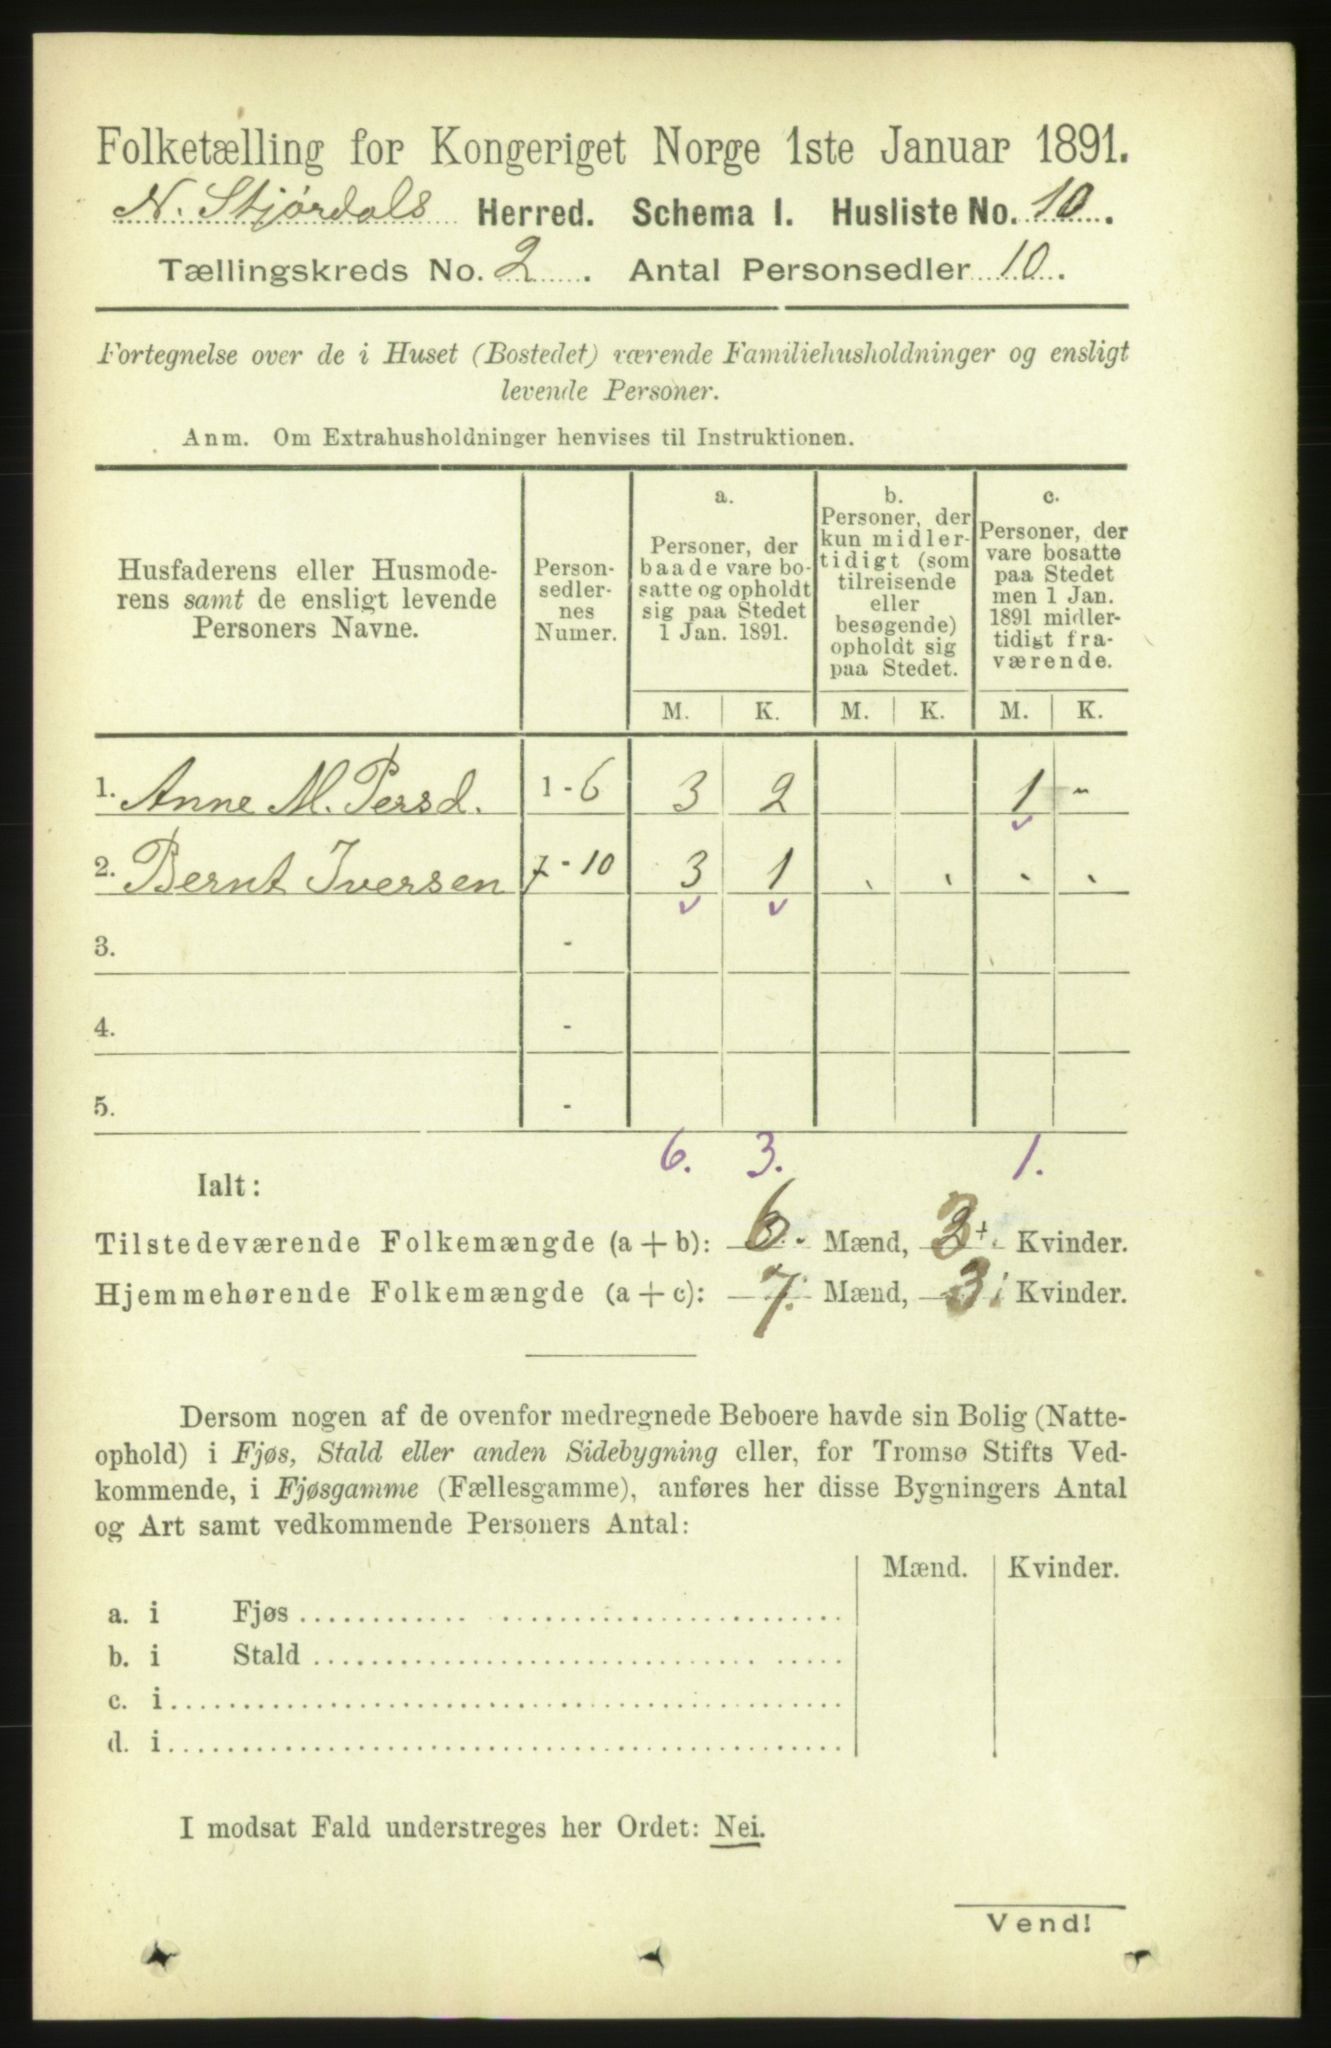 Folketælling for Kongeriget Norge 1ste Januar 1891.
N. Stjørdals Herred. Schema I. Husliste No. 10.
Tællingskreds No. 2. Antal Personsedler 10.
Fortegnelse over de i Huset (Bostedet) værende Familiehusholdninger og ensligt
levende Personer.
Anm. Om Extrahusholdninger henvises til Instruktionen.
Husfaderens eller Husmode-
rens samt de ensligt levende
Personers Navne.
Person-
sedler-
nes
Numer.
a.
Personer, der
baade vare bo-
satte og opholdt
sig paa Stedet
1 Jan. 1891.
b.
Personer, der
kun midler-
tidigt (som
tilreisende
eller
besøgende)
opholdt sig
paa Stedet.
c.
Personer, der
vare bosatte
paa Stedet
men 1 Jan.
1891 midler-
tidigt fra-
værende.
M. K. M. K. M. K.
1. Anne M. Persd. 1 - 6 3 2 1 -
2. Bernt Iversen 7 - 10 3 1
3. -
4. -
5. -
6. 3. 1.
Ialt:
Tilstedeværende Folkemængde (a + b): 6. Mænd, 3. Kvinder.
Hjemmehørende Folkemængde (a + c): 7. Mænd, 3. Kvinder.
Dersom nogen af de ovenfor medregnede Beboere havde sin Bolig (Natte-
ophold) i Fjøs, Stald eller anden Sidebygning eller, for Tromsø Stifts Ved-
kommende, i Fjøsgamme (Fællesgamme), anføres her disse Bygningers Antal
og Art samt vedkommende Personers Antal:
Mænd. Kvinder.
a. i Fjøs
b. i Stald
c. i
d. i
I modsat Fald understreges her Ordet: Nei.
Vend!